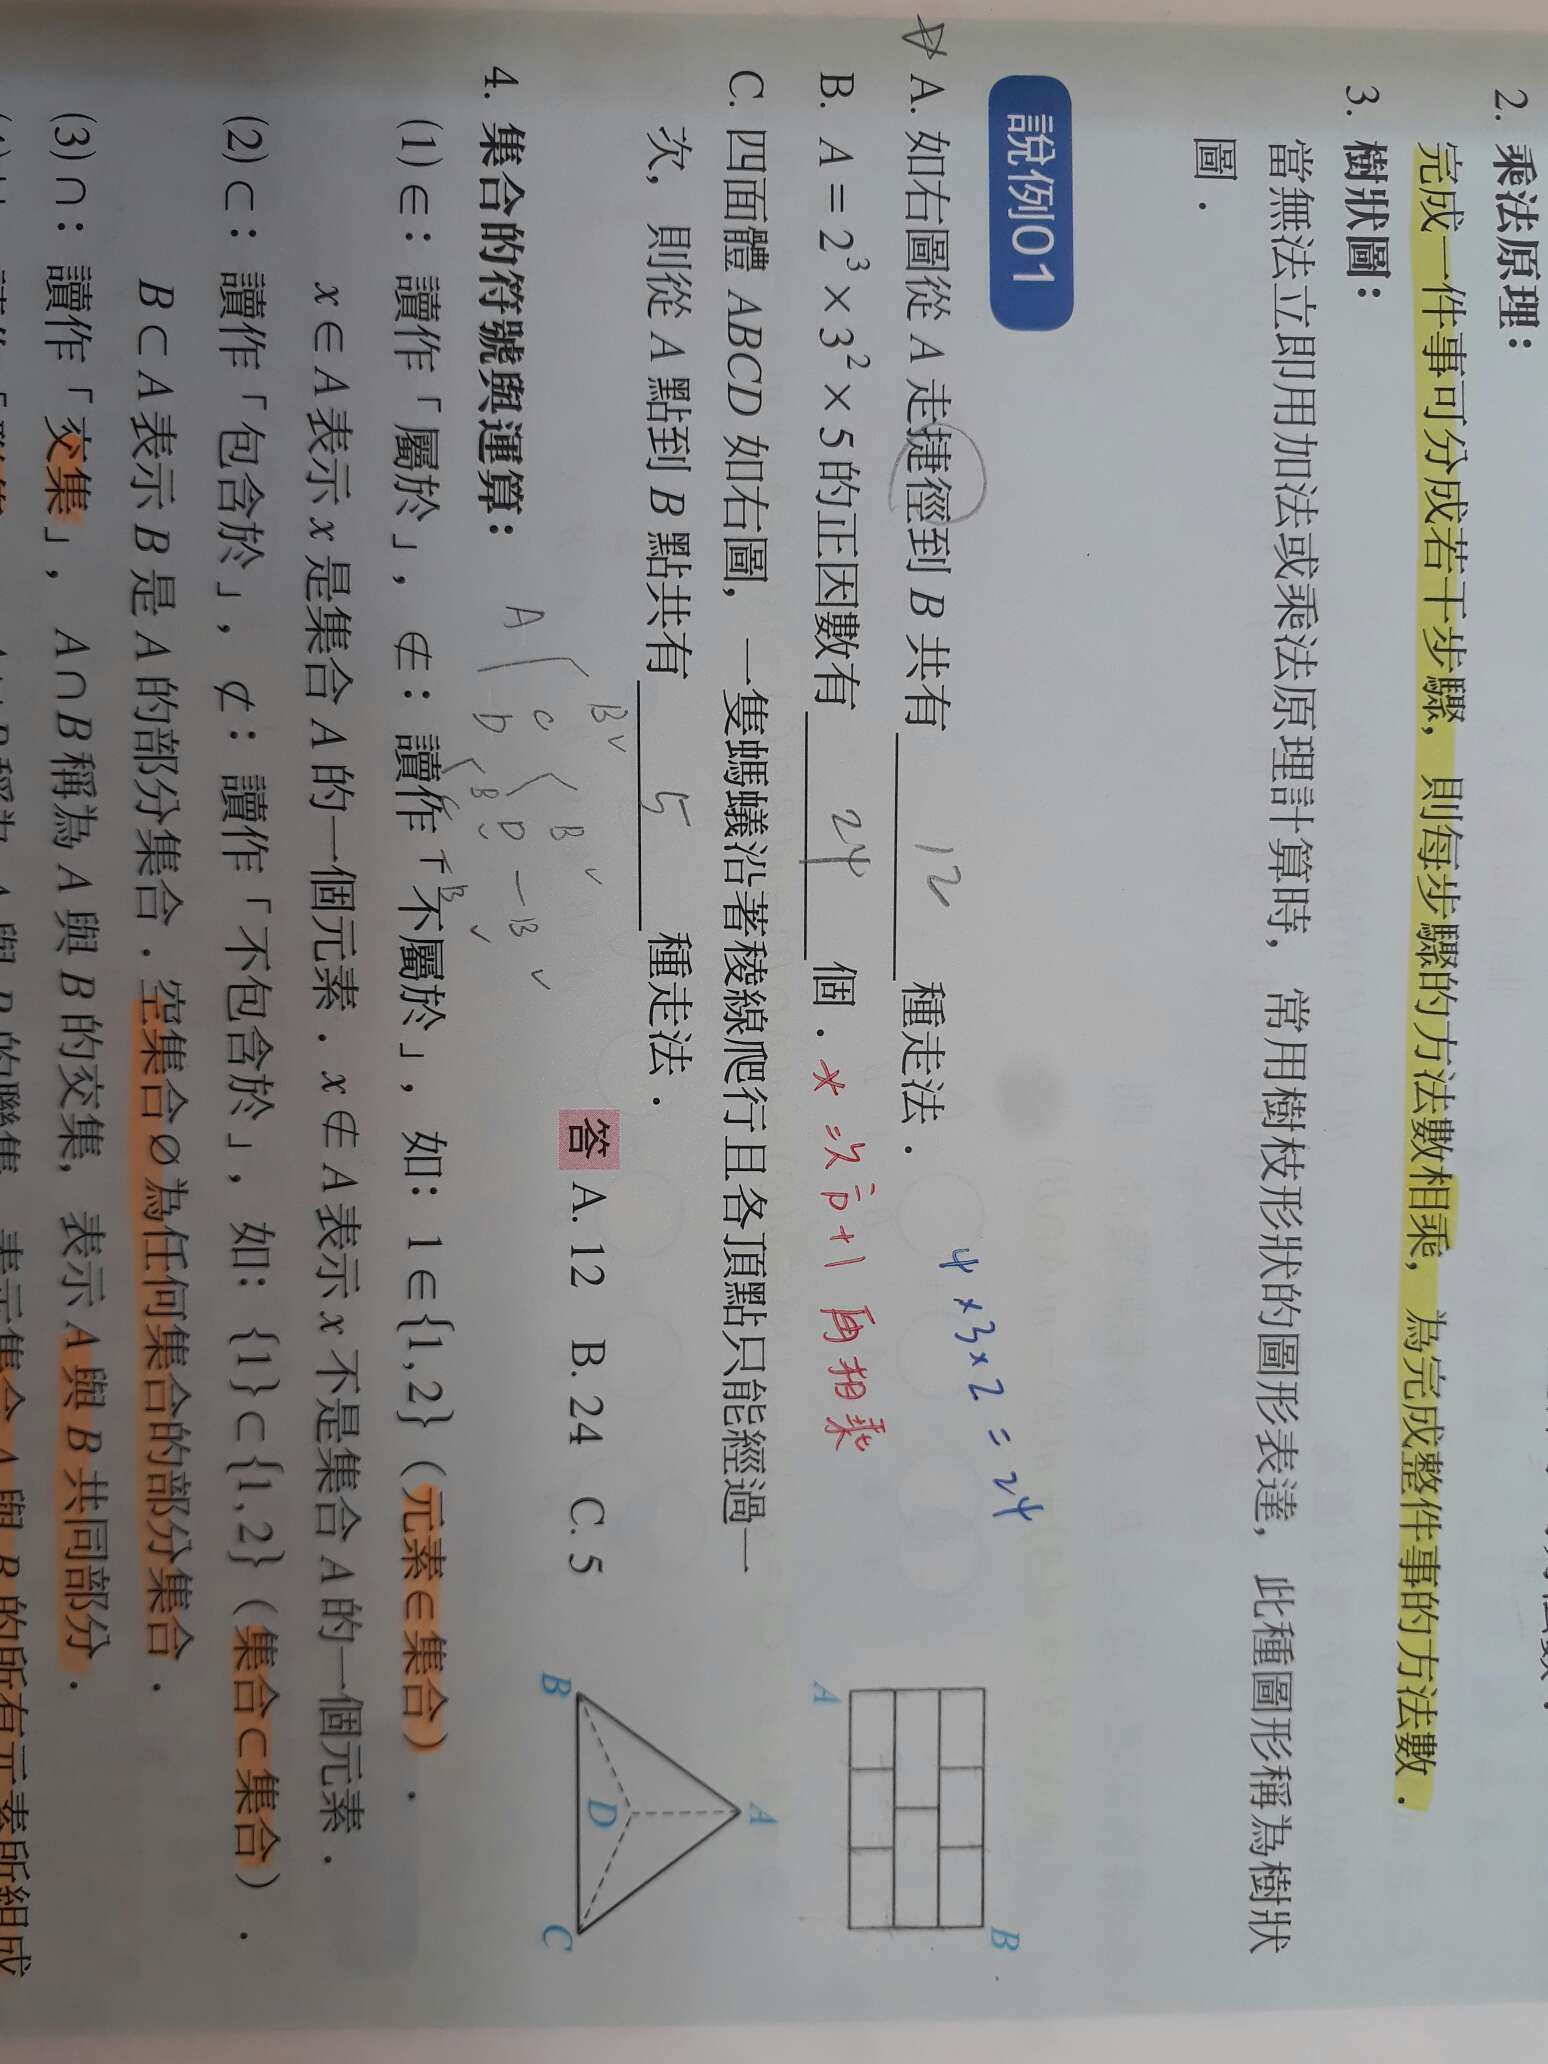 2. 乘法原理：
完成一件事可分成若干步驟，則每步驟的方法數相乘，為完成整件事的方法數．
3. 樹狀圖：
當無法立即用加法或乘法原理計算時，常用樹枝形狀的圖形表達，此種圖形稱為樹狀
圖．
說例01
A. 如右圖從 A 走捷徑到 B 共有 12 種走法．
4×3×2=24
B. A = 2³ × 3² × 5 的正因數有 24 個．* =次方+1 再相乘
C. 四面體 ABCD 如右圖，一隻螞蟻沿著稜線爬行且各頂點只能經過一
次，則從 A 點到 B 點共有 5 種走法．
答 A. 12 B. 24 C. 5
A
B
A
B
C
D
A
B
C
B
D
B
D
B
C
B
4. 集合的符號與運算：
(1)∈：讀作「屬於」，∉：讀作「不屬於」，如：1∈{1, 2}（元素∈集合）．
x∈A 表示 x 是集合 A 的一個元素．x∉A 表示 x 不是集合 A 的一個元素．
(2)⊂：讀作「包含於」，⊄：讀作「不包含於」，如：{1}⊂{1, 2}（集合⊂集合）．
B⊂A 表示 B 是 A 的部分集合．空集合∅為任何集合的部分集合．
(3)∩：讀作「交集」，A∩B 稱為 A 與 B 的交集，表示 A 與 B 共同部分．